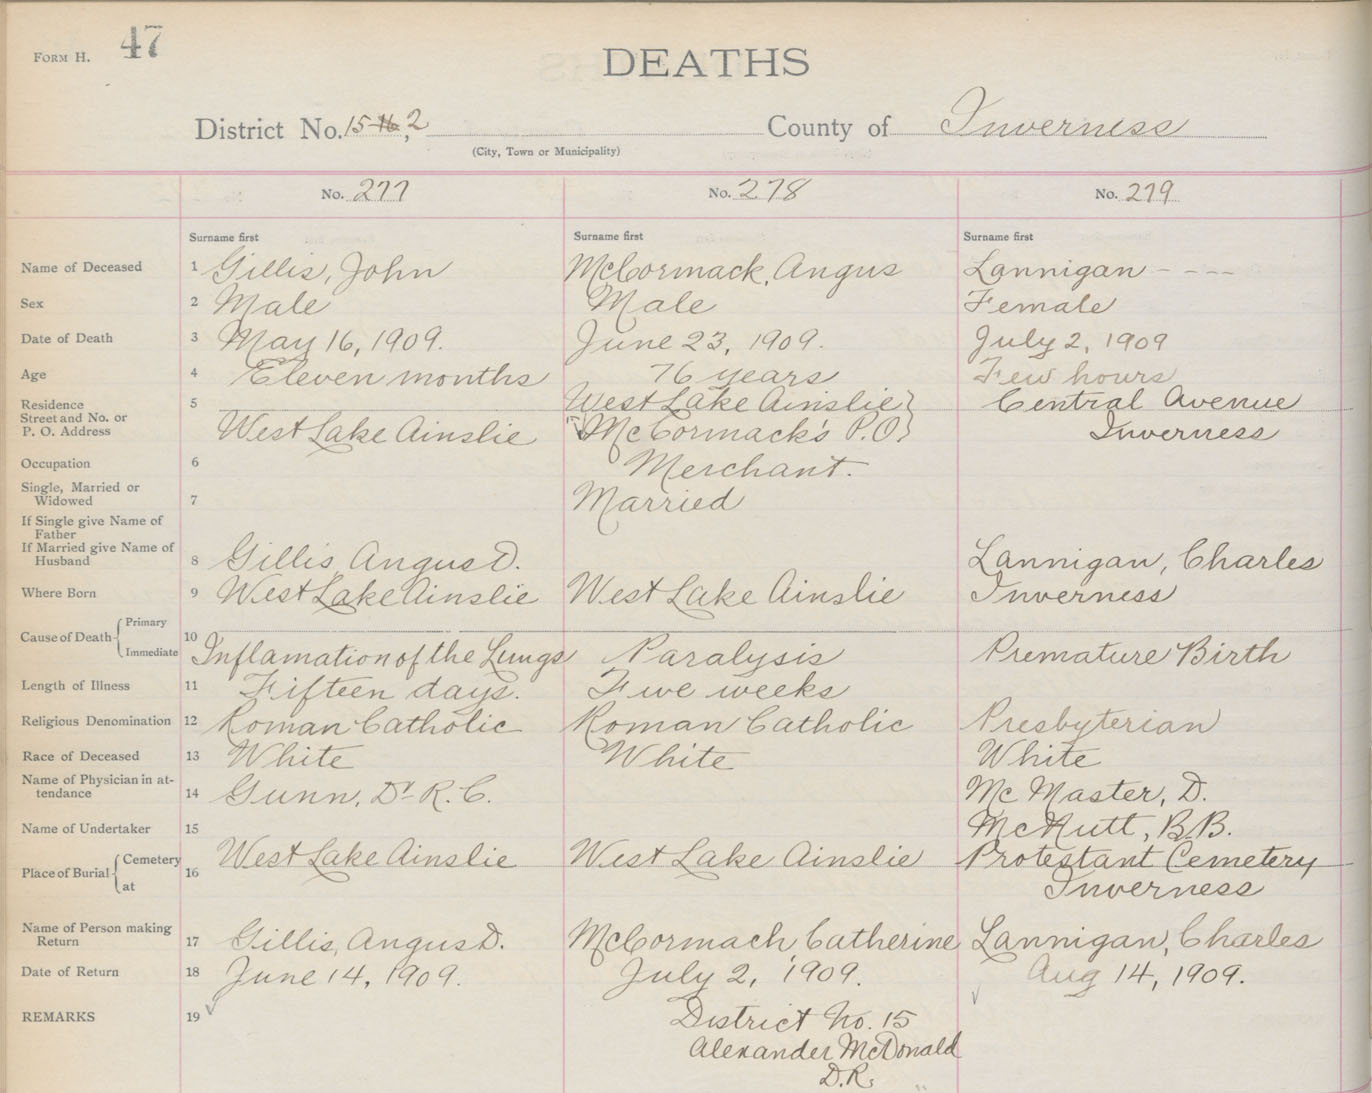 FORM H. 47
DEATHS
District No. 15 16, 2 County of Inverness
(City, Town or Municipality)
No. 277 No. 278 No. 279
Surname first Surname first Surname first
Name of Deceased 1 Gillis, John McCormack, Angus Lannigan - - - -
Sex 2 Male Male Female
Date of Death 3 May 16, 1909. June 23, 1909. July 2, 1909
Age 4 Eleven months 76 years Few hours
Residence 5 West Lake Ainslie } Central Avenue
Street and No. or
P. O. Address West Lake Ainslie McCormack's P.O } Inverness
Occupation 6 Merchant.
Single, Married or
Widowed 7 Married
If Single give Name of
Father
If Married give Name of
Husband 8 Gillis, Angus D. Lannigan, Charles
Where Born 9 West Lake Ainslie West Lake Ainslie Inverness
Cause of Death { Primary
10
Immediate Inflamation of the Lungs Paralysis Premature Birth
Length of Illness 11 Fifteen days. Five weeks
Religious Denomination 12 Roman Catholic Roman Catholic Presbyterian
Race of Deceased 13 White White White
Name of Physician in at-
tendance 14 Gunn, Dr R. C. Mc Master, D.
Name of Undertaker 15 McNutt, B.B.
Place of Burial { Cemetery West Lake Ainslie West Lake Ainslie Protestant Cemetery
at 16 Inverness
Name of Person making
Return 17 Gillis, Angus D. McCormach Catherine Lannigan, Charles
Date of Return 18 June 14, 1909. July 2, 1909. Aug 14, 1909.
REMARKS 19 District No. 15
Alexander McDonald
D.R.